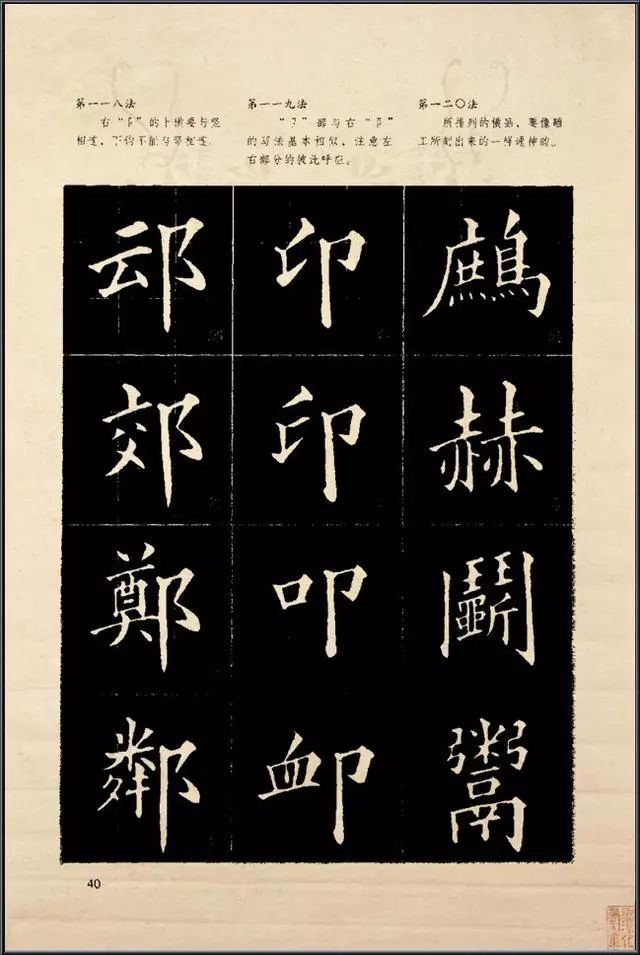 第一一八法
右“阝”的上横要与竖
相连，下钩不能与竖相连。
第一一九法
“卩”部与右“阝”
的写法基本相似，注意左
右部分的彼此呼应。
第一二〇法
所排列的横画，要像雕
工所刻出来的一样
䢵 印 鷓
郊 印 赫
鄭 叩 鬭
鄰 卹 鬻
40